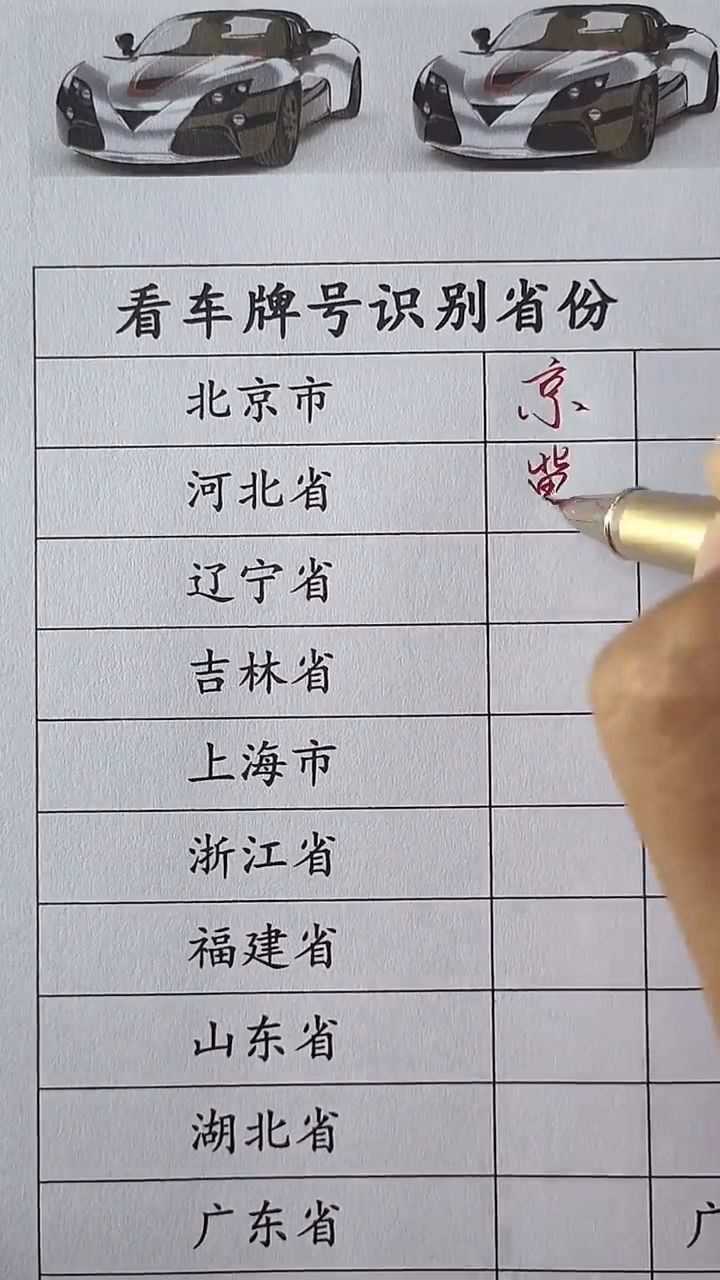 看车牌号识别省份
北京市 京
河北省
辽宁省
吉林省
上海市
浙江省
福建省
山东省
湖北省
广东省 广